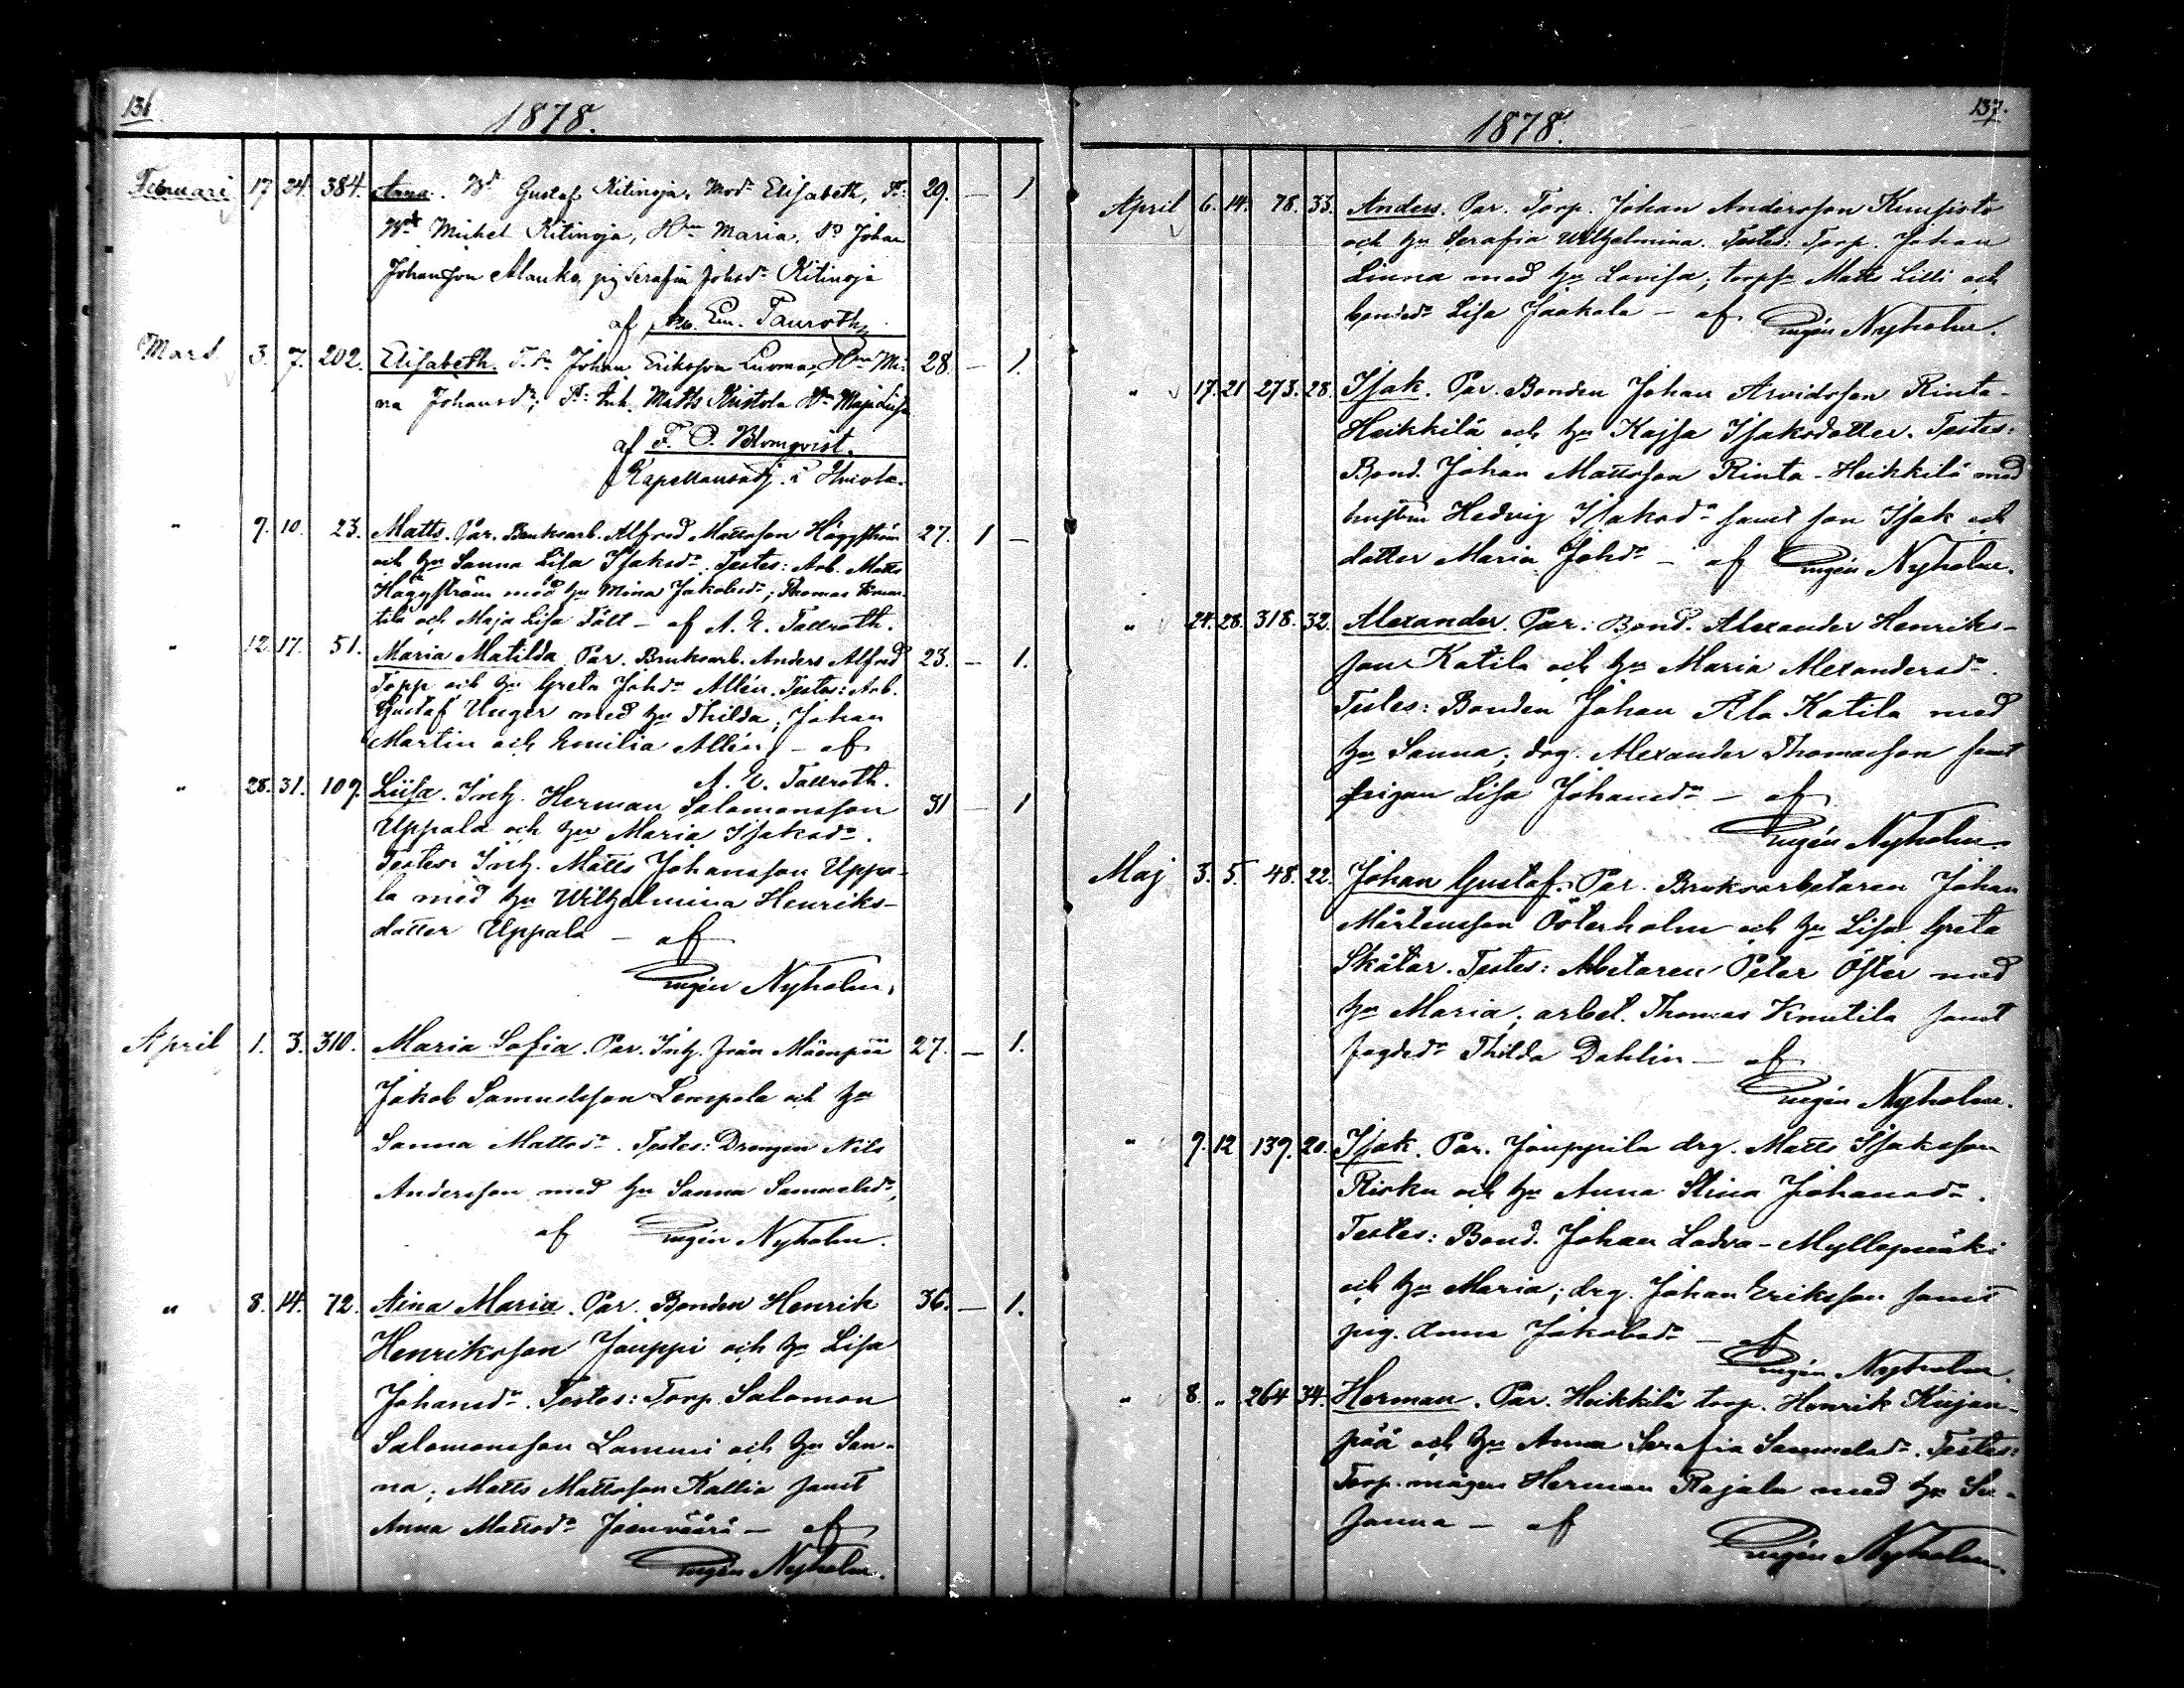 136.
1878.
Februari 17 24. 384. Anna. Bd Gustaf Kitinoja, Mod. Elisabeth, F: 29. — 1
Bd Michel Kitinoja, Hn Maria. Dr Johan
Johansson Alanko, pig Serafia Johsdr Kitinoja
af Em. Tauroth
Mars 3. 7. 202. Elisabeth. Johan Eriksson Luoma, Hn Mi- 28. — 1.
na Johansdr; F: Inh. Matts Knistola Hn Maja Lisa
af F. O. Blomqvist.
Kapellansadj. i
" 9. 10. 23. Matts. Par. Bruksarb. Alfred Mattsson Häggström 27. 1 —
och hu Sanna Lisa Isaksdr. Testes: Arb. Matts
Häggström med hu Mina Jakobsdr; Thomas Knuu-
tila och Maja Lisa Fält — af A. E. Tallroth.
" 12. 17. 51. Maria Matilda. Par. Bruksarb. Anders Alfred 23. — 1.
Topp och hu Greta Johdr Allén. Testes: Arb.
Gustaf Unger med hu Thilda; Johan
Martin och Emilia Allén — af
A. E. Tallroth.
" 28. 31. 109. Liisa. Inh. Herman Salomonsson 31 — 1
Uppala och hu Maria Isaksdr.
Testes: Inh. Matts Johansson Uppa-
la med hu Wilhelmina Henriks-
dotter Uppala — af
Eugén Nyholm.
April 1. 3. 310. Maria Sofia. Par. Inh. från Mäenpää 27. — 1.
Jakob Samuelsson Lempola och hu
Sanna Mattsdr. Testes: Drengen Nils
Andersson med hu Sanna Samuelsdr,
af Eugén Nyholm.
" 8. 14. 72. Aina Maria. Par. Bonden Henrik 36. — 1.
Henriksson Jouppi och hu Lisa
Johansdr. Testes: Torp. Salomon
Salomonsson Lammi och hu San-
na; Matts Mattsson Kallio samt
Anna Mattsdr Joenväärä — af
Eugén Nyholm.
137.
1878.
April 6. 14. 78. 33. Anders. Par. Torp. Johan Andersson Kuusisto
och hu Serafia Wilhelmina. Testes: Torp. Johan
Linna med hu Lovisa; torps. Matts Lilli och
bondedr Lisa Jaakola — af Eugén Nyholm.
" 17. 21 273. 28. Isak. Par. Bonden Johan Arvidsson Rinta-
Heikkilä och hu Kajsa Isaksdotter. Testes:
Bond. Johan Mattsson Rinta-Heikkilä med
hustru Hedvig Isaksdr samt son Isak och
dotter Maria Johdr — af Eugén Nyholm.
" 24. 28. 318. 32. Alexander. Par: Bond. Alexander Henriks-
son Katila och hu Maria Alexandersdr.
Testes: Bonden Johan Ala Katila med
hu Sanna; drg. Alexander Thomasson samt
pigan Lisa Johansdr — af
Eugén Nyholm.
Maj 3. 5. 48. 22. Johan Gustaf. Par. Bruksarbetaren Johan
Mårtensson Österholm och hu Lisa Greta
Skåtar. Testes: Arbetaren Peter Öster med
hu Maria; arbet. Thomas Knutila samt
fogdedr Thilda Dahlin — af
Eugén Nyholm.
" 9. 12 139. 20. Isak. Par. Jouppila drg. Matts Isaksson
Risku och hu Anna Stina Johansdr.
Testes: Bond. Johan Ladva-Myllymäki
och hu Maria; drg. Johan Eriksson samt
pig. Anna Jakobsdr — af
Eugén Nyholm.
" 8. " 264 34. Herman. Par. Heikkilä torp. Henrik Kujan-
pää och hu Anna Serafia Samuelsdr. Testes:
Torp.mågen Herman Rajala med hu Su-
sanna — af
Eugén Nyholm.